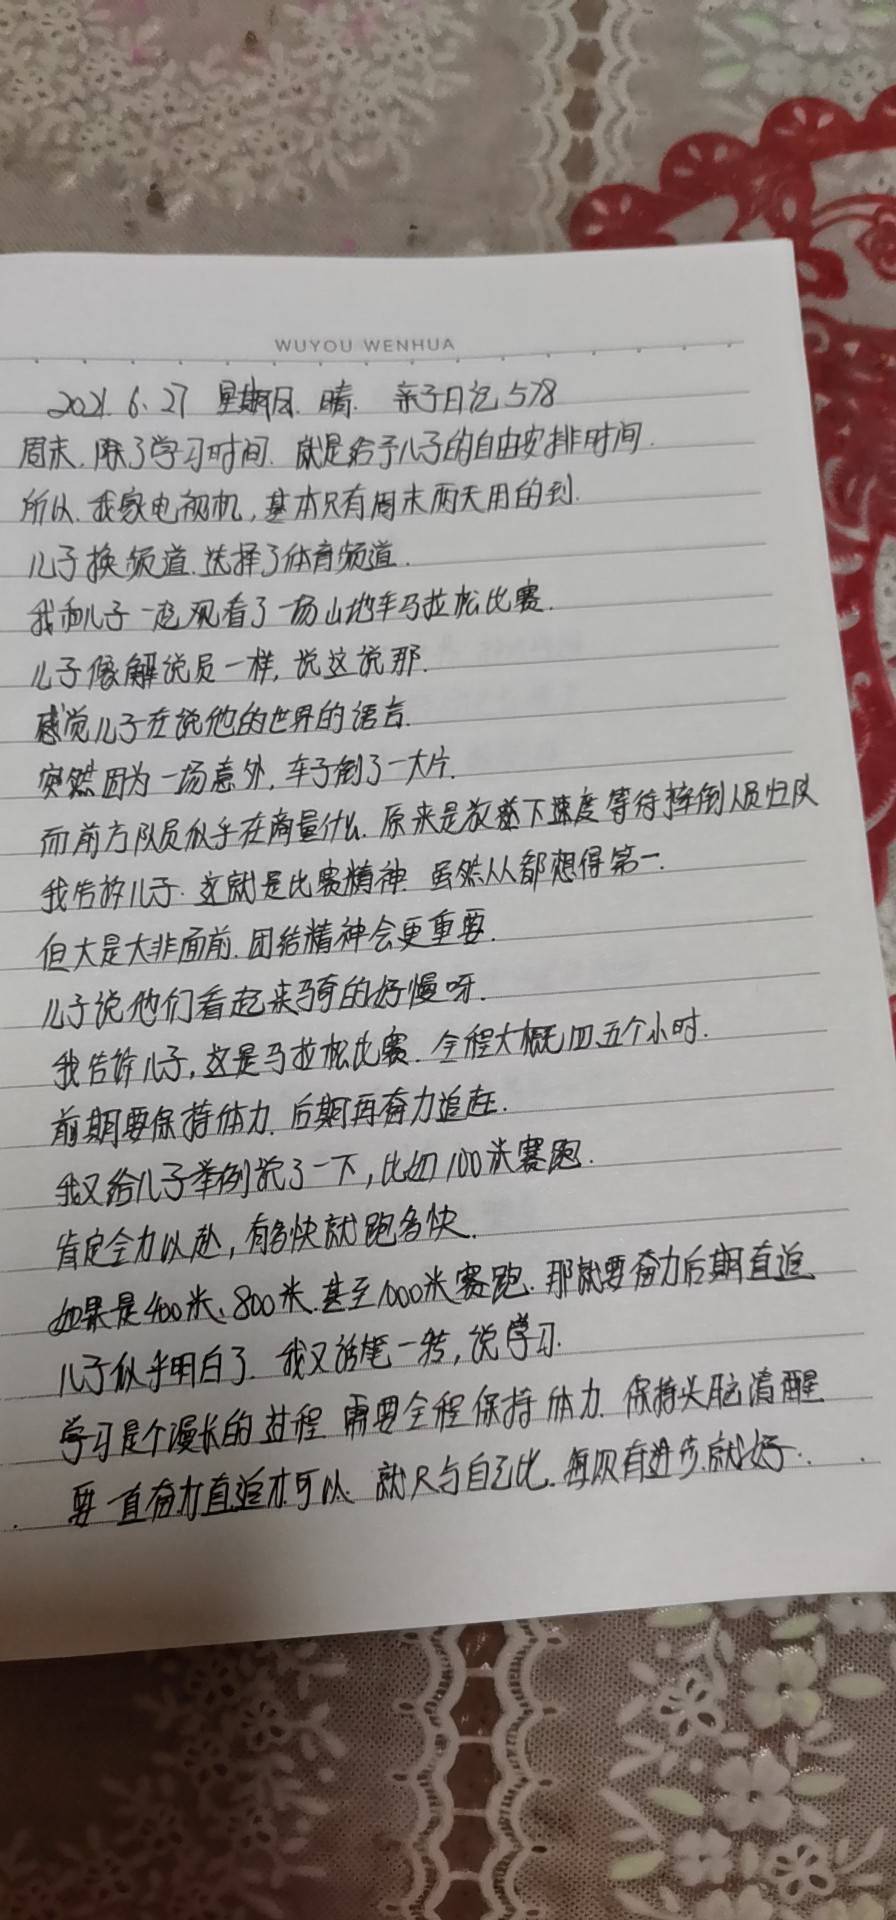 WUYOU WENHUA
2021.6.27 星期日. 晴. 亲子日记578
周末.除了学习时间.就是给予儿子的自由安排时间.
所以.我家电视机,基本只有周末两天用的到.
儿子换频道.选择了体育频道.
我和儿子一起观看了一场山地车马拉松比赛.
儿子像解说员一样,说这说那.
感觉儿子在说他的世界的语言.
突然因为一场意外,车子倒了一大片.
而前方队员似乎在商量什么.原来是放下速度等待摔倒人员归队
我告诉儿子.这就是比赛精神.虽然人人都想得第一.
但大是大非面前.团结精神会更重要.
儿子说他们看起来骑的好慢呀.
我告诉儿子,这是马拉松比赛.全程大概四.五个小时.
前期要保持体力.后期再奋力追赶.
我又给儿子举例说了一下,比如100米赛跑.
肯定全力以赴,有多快就跑多快.
如果是400米、800米.甚至1000米赛跑.那就要奋力后期直追
儿子似乎明白了.我又话笔一转,说学习.
学习是个漫长的过程 需要全程保持体力.保持头脑清醒
要一直奋力直追才可以.就只与自己比.每次有进步.就好.